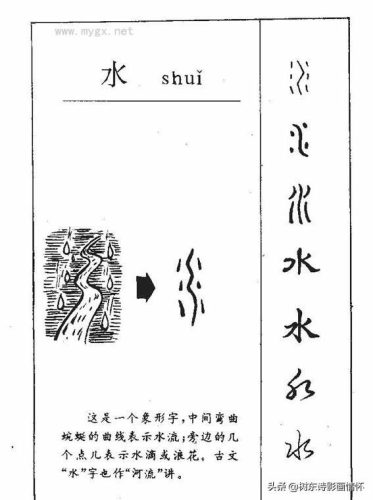 www.mygx.net
水 shuǐ
这是一个象形字，中间弯曲
蜿蜒的曲线表示水流；旁边的几
个点儿表示水滴或浪花。古文
“水”字也作“河流”讲。
水
水
水
水
头条 @树东诗影画情怀